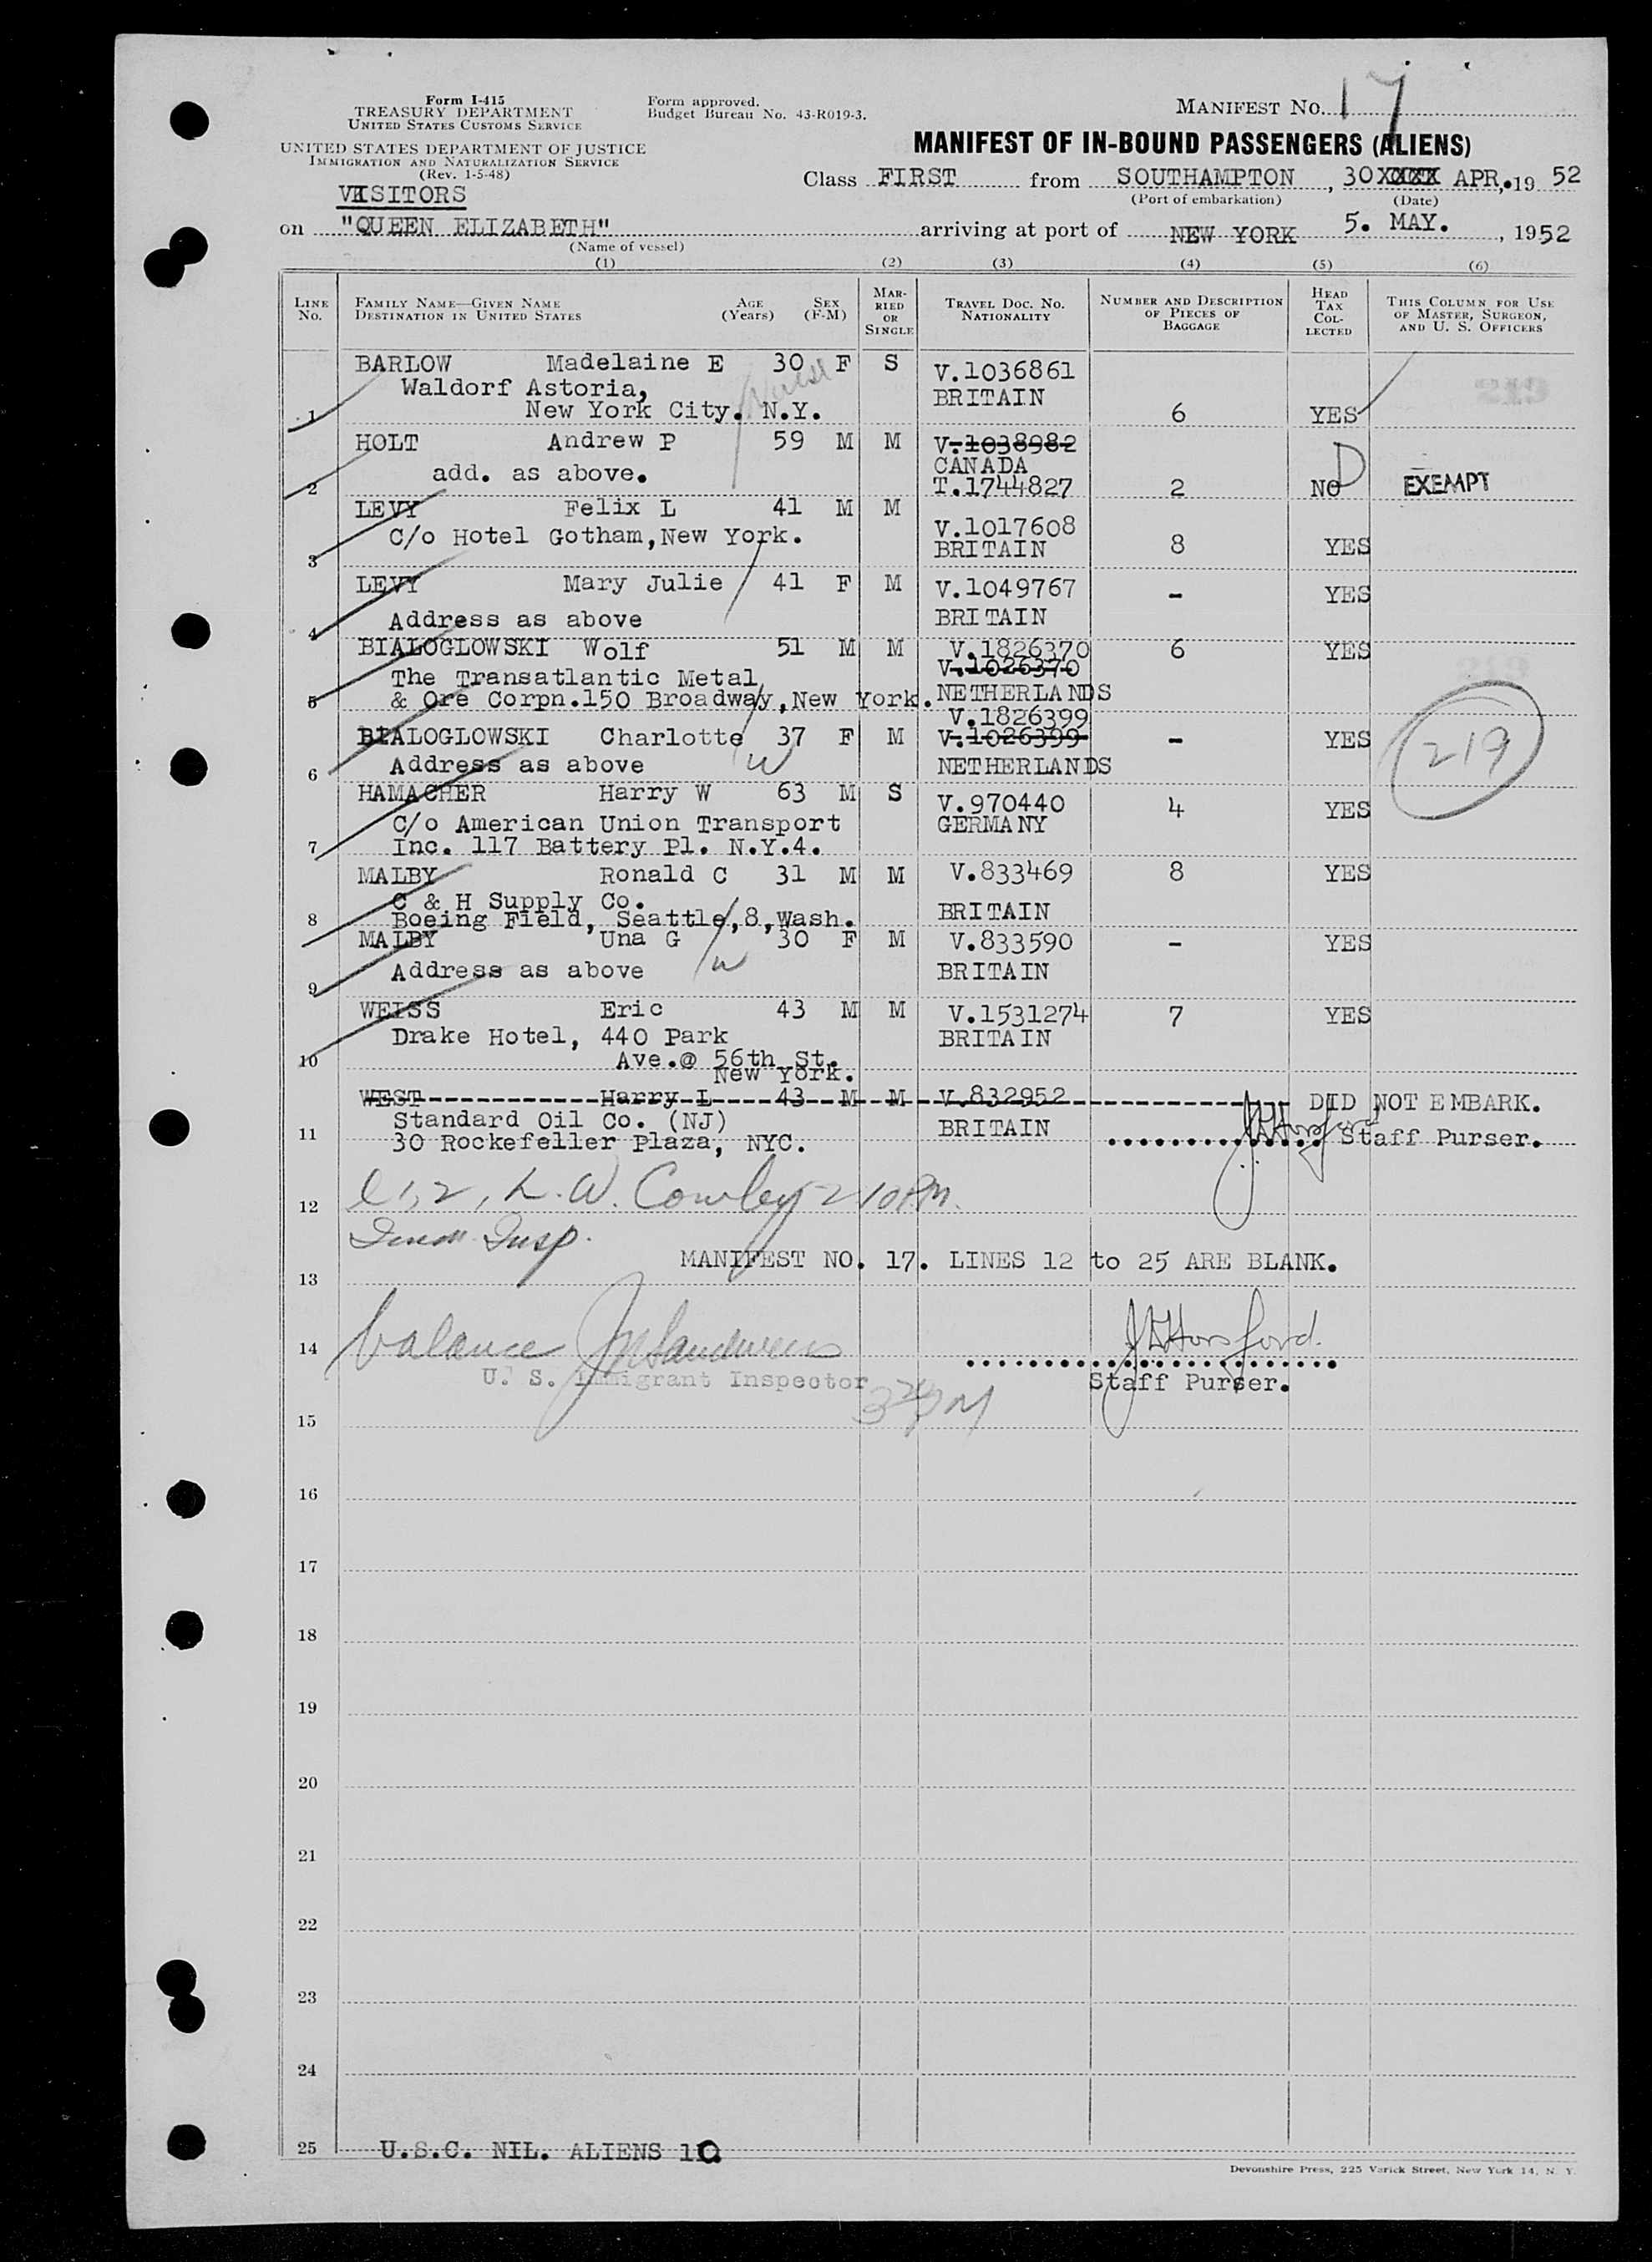 Form I-415
TREASURY DEPARTMENT
UNITED STATES CUSTOMS SERVICE
UNITED STATES DEPARTMENT OF JUSTICE
IMMIGRATION AND NATURALIZATION SERVICE
(Rev. 1-5-48)
Form approved.
Budget Bureau No. 43-R019-3.
MANIFEST No. 17
MANIFEST OF IN-BOUND PASSENGERS (ALIENS)
VISITORS
Class FIRST from SOUTHAMPTON, 30 APR, 19 52
(Port of embarkation) (Date)
on "QUEEN ELIZABETH" arriving at port of NEW YORK 5. MAY., 1952
(Name of vessel)
(1) (2) (3) (4) (5) (6)
LINE No. FAMILY NAME—GIVEN NAME DESTINATION IN UNITED STATES AGE (Years) SEX (F-M) MARRIED OR SINGLE TRAVEL DOC. NO. NATIONALITY NUMBER AND DESCRIPTION OF PIECES OF BAGGAGE HEAD TAX COLLECTED THIS COLUMN FOR USE OF MASTER, SURGEON, AND U. S. OFFICERS
BARLOW Madelaine E 30 F S V.1036861
Waldorf Astoria, BRITAIN
1 New York City. N.Y. 6 YES
HOLT Andrew P 59 M M V.1038982
add. as above. CANADA
2 T.1744827 2 NO D EXEMPT
LEVY Felix L 41 M M V.1017608
3 C/o Hotel Gotham, New York. BRITAIN 8 YES
LEVY Mary Julie 41 F M V.1049767 - YES
4 Address as above BRITAIN
BIALOGLOWSKI Wolf 51 M M V.1826370 6 YES
V.1026370
The Transatlantic Metal
5 & Ore Corpn.150 Broadway, New York. NETHERLANDS
V.1826399
BIALOGLOWSKI Charlotte 37 F M V.1026399 - YES
6 Address as above W NETHERLANDS
219
HAMACHER Harry W 63 M S V.970440 4 YES
C/o American Union Transport GERMANY
7 Inc. 117 Battery Pl. N.Y.4.
MALBY Ronald C 31 M M V.833469 8 YES
C & H Supply Co.
8 Boeing Field, Seattle, 8, Wash. BRITAIN
MALBY Una G 30 F M V.833590 - YES
9 Address as above W BRITAIN
WEISS Eric 43 M M V.1531274 7 YES
Drake Hotel, 440 Park BRITAIN
10 Ave.@ 56th St.
New York.
WEST Harry L 43 M M V.832952 DID NOT EMBARK.
Standard Oil Co. (NJ) BRITAIN
11 30 Rockefeller Plaza, NYC. Staff Purser.
12 L. W. Cowley 2 10 PM.
Imm Insp.
MANIFEST NO. 17. LINES 12 to 25 ARE BLANK.
13
14 balance J Horsford.
U. S. Immigrant Inspector Staff Purser.
15
16
17
18
19
20
21
22
23
24
25 U.S.C. NIL. ALIENS 10
Devonshire Press, 225 Varick Street, New York 14, N. Y.